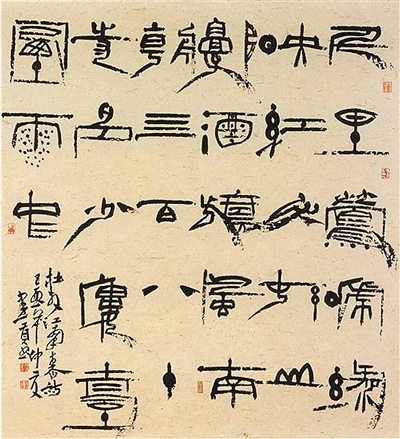 千里鶯啼綠
映紅水村山
郭酒旗風南
朝四百八十
寺多少樓臺
煙雨中
杜牧江南春詩
年仲夏